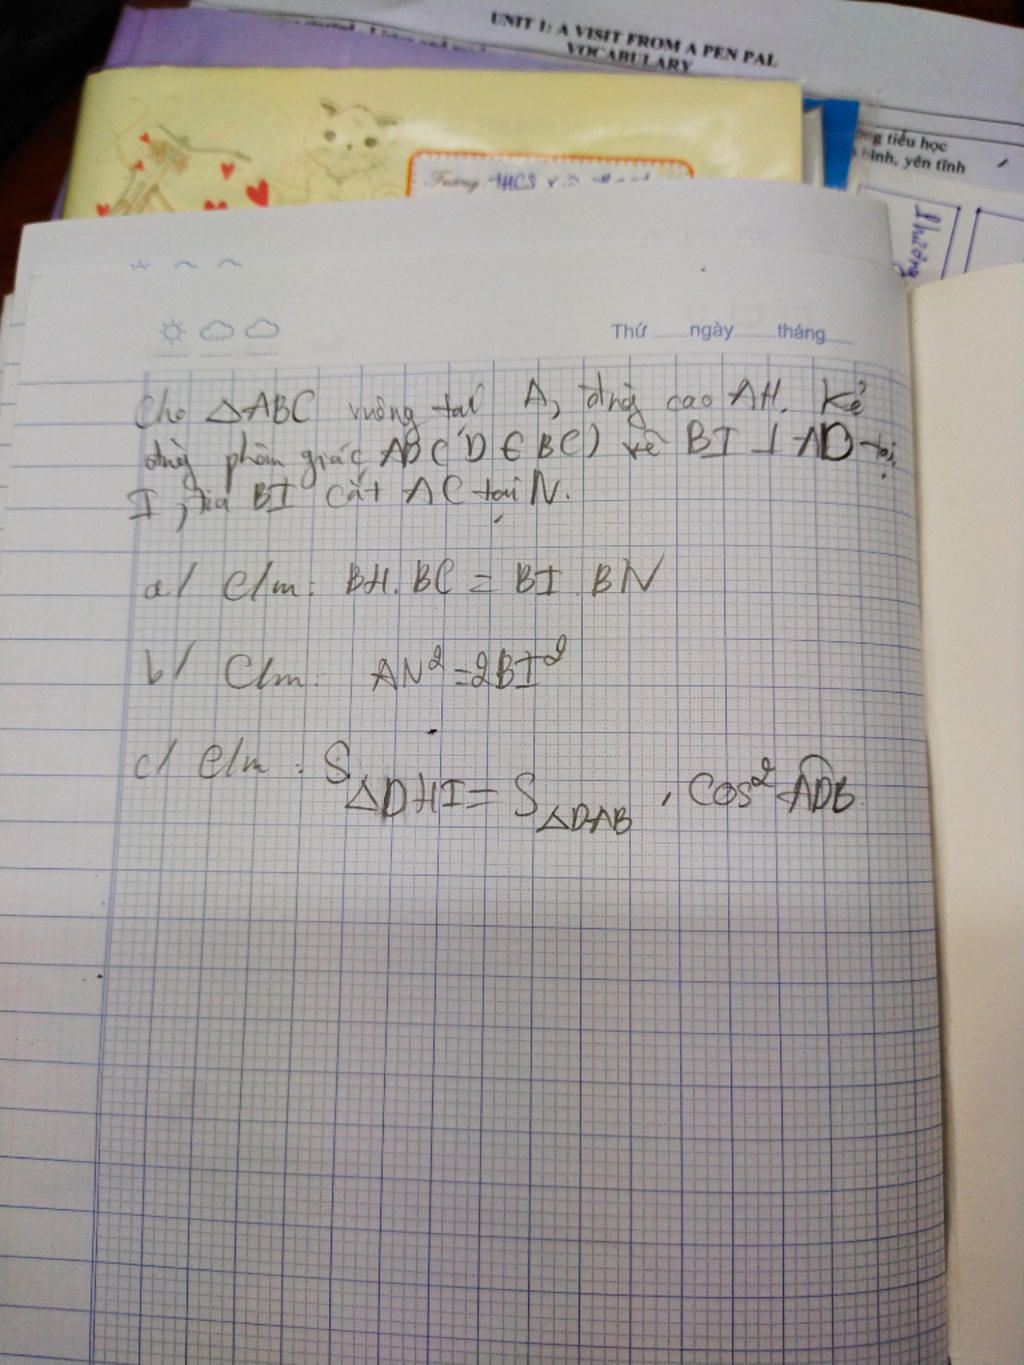 UNIT 1: A VISIT FROM A PEN PAL
VOCABULARY
ng tiểu học
bình, yên tĩnh
Trường: THCS
Thứ ........ ngày ........ tháng ........
Cho △ABC vuông tại A, đường cao AH. Kẻ
đường phân giác AD (D ∈ BC) vẽ BI ⊥ AD tại
I, tia BI cắt AC tại N.
a/ C/m: BH.BC = BI.BN
b/ C/m: AN² = 2BI²
c/ C/m: S△DHI = S△DAB . cos² ADB